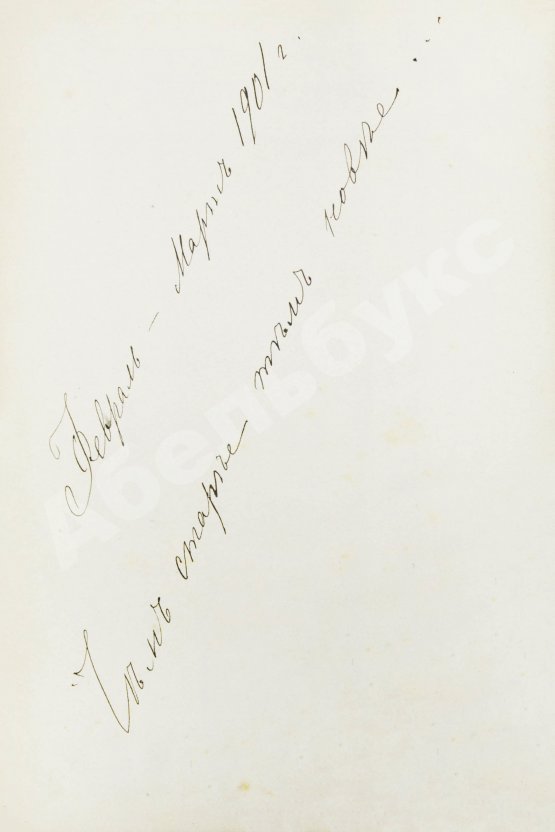 Февраль – Мартъ 1901 г.
Чѣмъ старѣе тѣмъ новѣе ...
Абельбукс